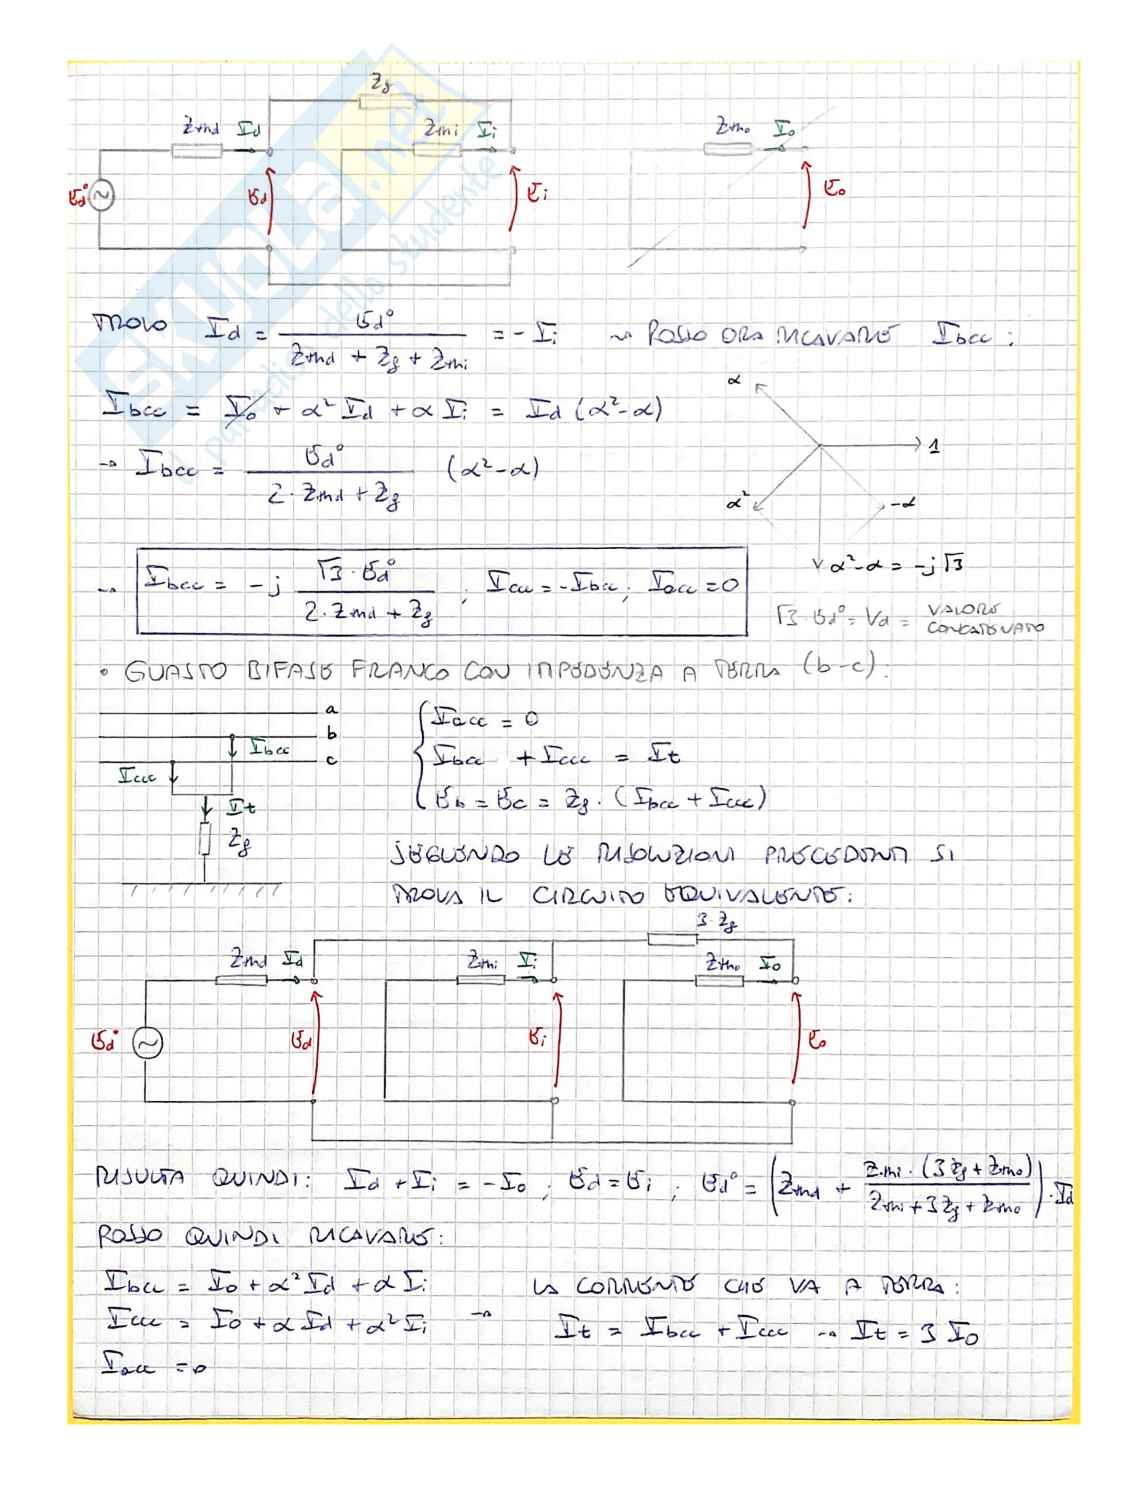 Zg
Zmd Id Zmi Ii Zmo Io
Ed° Ed Ei Eo
TROVO Id = Ed° / (Zmd + Zg + Zmi) = - Ii → POSSO ORA RICAVARE Ibcc :
Ibcc = Io + α² Id + α Ii = Id (α²-α)
→ Ibcc = Ed° / (2·Zmd + Zg) (α²-α)
α 1 α² -α
→ Ibcc = -j √3·Ed° / (2·Zmd + Zg) ; Iccc = -Ibcc ; Iacc = 0
α²-α = -j√3
√3·Ed° = Vd = VALORE CONCATENATO
• GUASTO BIFASE FRANCO CON IMPEDENZA A TERRA (b-c):
a
b
c
Ibcc
Iccc
It
Zg
Iacc = 0
Ibcc + Iccc = It
Eb = Ec = Zg · (Ibcc + Iccc)
SEGUENDO LE RISOLUZIONI PRECEDENTI SI
TROVA IL CIRCUITO EQUIVALENTE:
3·Zg
Zmd Id Zmi Ii Zmo Io
Ed° Ed Ei Eo
RISULTA QUINDI: Id + Ii = - Io ; Ed = Ei ; Ed° = (Zmd + Zmi · (3Zg + Zmo) / (Zmi + 3Zg + Zmo)) · Id
POSSO QUINDI RICAVARE:
Ibcc = Io + α² Id + α Ii
Iccc = Io + α Id + α² Ii →
Iacc = 0
LA CORRENTE CHE VA A TERRA:
It = Ibcc + Iccc → It = 3 Io
SKUOLA.net
il paradiso dello studente